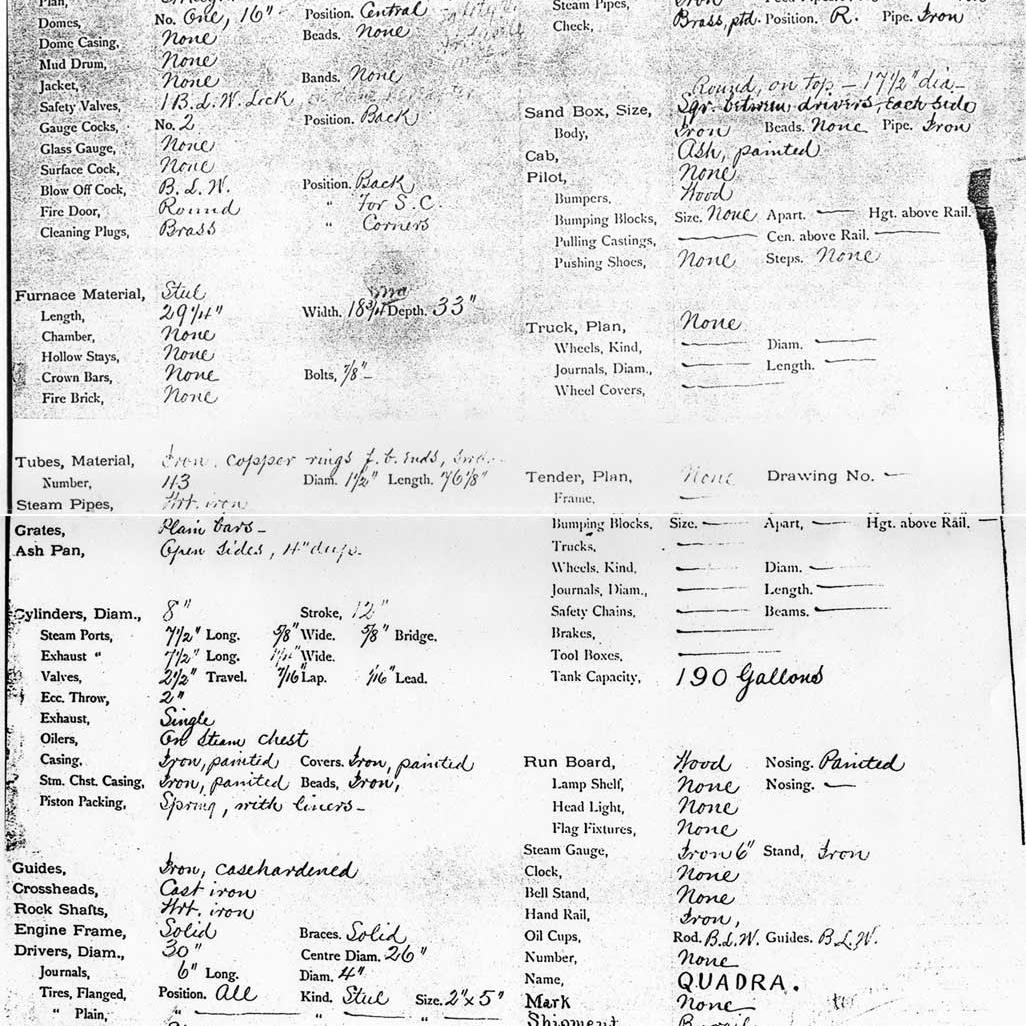 Domes, No. One, 16" Position. Central
Dome Casing, None Beads. None
Mud Drum, None
Jacket, None Bands. None
Safety Valves, 1 B.L.W. Lock
Gauge Cocks, No. 2 Position. Back
Glass Gauge, None
Surface Cock, None
Blow Off Cock, B.L.W. Position. Back
Fire Door, Round " for S.C.
Cleaning Plugs, Brass " Corners
Furnace Material, Steel
Length, 29 1/4" Width. 18 3/4 Depth. 33"
Chamber, None
Hollow Stays, None
Crown Bars, None Bolts, 7/8"
Fire Brick, None
Tubes, Material, Iron. Copper rings f.b. Ends,
Number, 43 Diam. 1 1/2" Length. 76 1/8"
Steam Pipes, Wrt. iron
Grates, Plain bars -
Ash Pan, Open Sides, 4" deep.
Cylinders, Diam., 8" Stroke, 12"
Steam Ports, 7 1/2" Long. 5/8" Wide. 5/8" Bridge.
Exhaust " 7 1/2" Long. 1 1/4" Wide.
Valves, 2 1/2" Travel. 7/16" Lap. 1/16" Lead.
Ecc. Throw, 2"
Exhaust, Single
Oilers, On Steam chest
Casing, Iron, painted Covers. Iron, painted
Stm. Chst. Casing, Iron, painted Beads, Iron,
Piston Packing, Spring, with liners -
Guides, Iron, casehardened
Crossheads, Cast iron
Rock Shafts, Wrt. iron
Engine Frame, Solid Braces. Solid
Drivers, Diam., 30" Centre Diam. 26"
Journals, 6" Long. Diam. 4"
Tires, Flanged, Position. All Kind. Steel Size. 2" x 5"
" Plain, " " "
Steam Pipes,
Check, Brass, ptd. Position. R. Pipe. Iron
Round, on top - 17 1/2" dia -
Sand Box, Size, Sqr. between drivers, each side
Body, Iron Beads. None Pipe. Iron
Cab, Ash, painted
Pilot, None
Bumpers, Wood
Bumping Blocks, Size. None Apart. — Hgt. above Rail.
Pulling Castings, — Cen. above Rail. —
Pushing Shoes, None Steps. None
Truck, Plan, None
Wheels, Kind, — Diam. —
Journals, Diam., — Length. —
Wheel Covers, —
Tender, Plan, None Drawing No. —
Frame, —
Bumping Blocks, Size. — Apart, — Hgt. above Rail. —
Trucks, —
Wheels, Kind, — Diam. —
Journals, Diam., — Length. —
Safety Chains, — Beams. —
Brakes, —
Tool Boxes, —
Tank Capacity, 190 Gallons
Run Board, Wood Nosing. Painted
Lamp Shelf, None Nosing. —
Head Light, None
Flag Fixtures, None
Steam Gauge, Iron 6" Stand, Iron
Clock, None
Bell Stand, None
Hand Rail, Iron,
Oil Cups, Rod. B.L.W. Guides. B.L.W.
Number, None
Name, QUADRA.
Mark None
Shipment Brazil